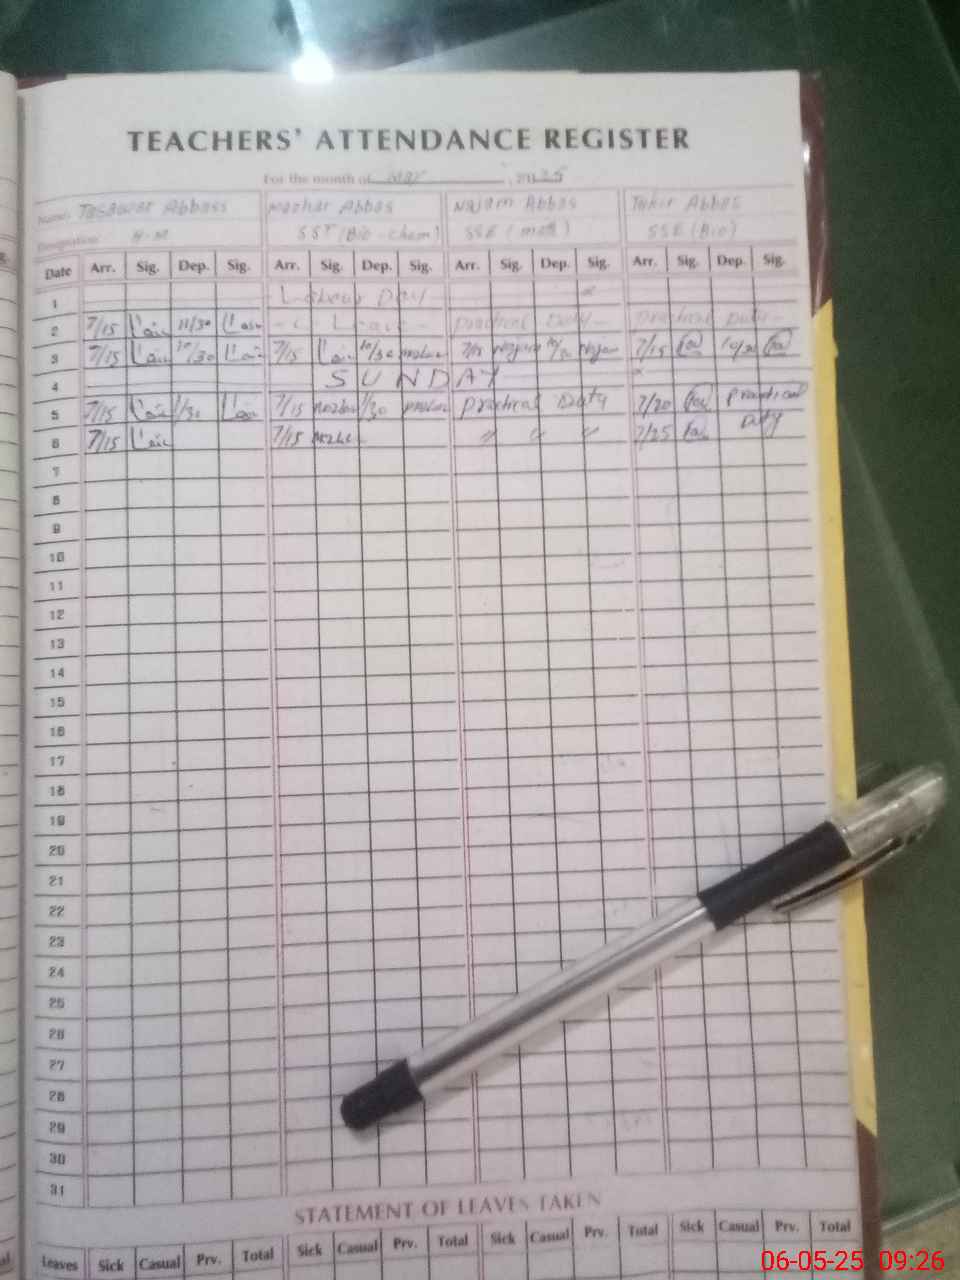 TEACHERS' ATTENDANCE REGISTER
For the month of May, 2025
Name: Tasawar Abbass Mazhar Abbas Najam Abbas Tahir Abbas
Designation: H-M SST (Bio-Chem) SSE (math) SSE (Bio)
Date Arr. Sig. Dep. Sig. Arr. Sig. Dep. Sig. Arr. Sig. Dep. Sig. Arr. Sig. Dep. Sig.
1 - Labour Day -
2 7/15 11/30 - C Leave - Practical Duty - Practical Duty -
3 7/15 10/30 7/15 10/30 7/15 Najam 10/30 Najam 7/15 10/30
4 SUNDAY
5 7/15 /30 7/15 /30 Practical Duty 7/20 Practical Duty
6 7/15 7/15 " " " 7/25
7
8
9
10
11
12
13
14
15
16
17
18
19
20
21
22
23
24
25
26
27
28
29
30
31
STATEMENT OF LEAVES TAKEN
Leaves Sick Casual Prv. Total Sick Casual Prv. Total Sick Casual Prv. Total Sick Casual Prv. Total
06-05-25 09:26